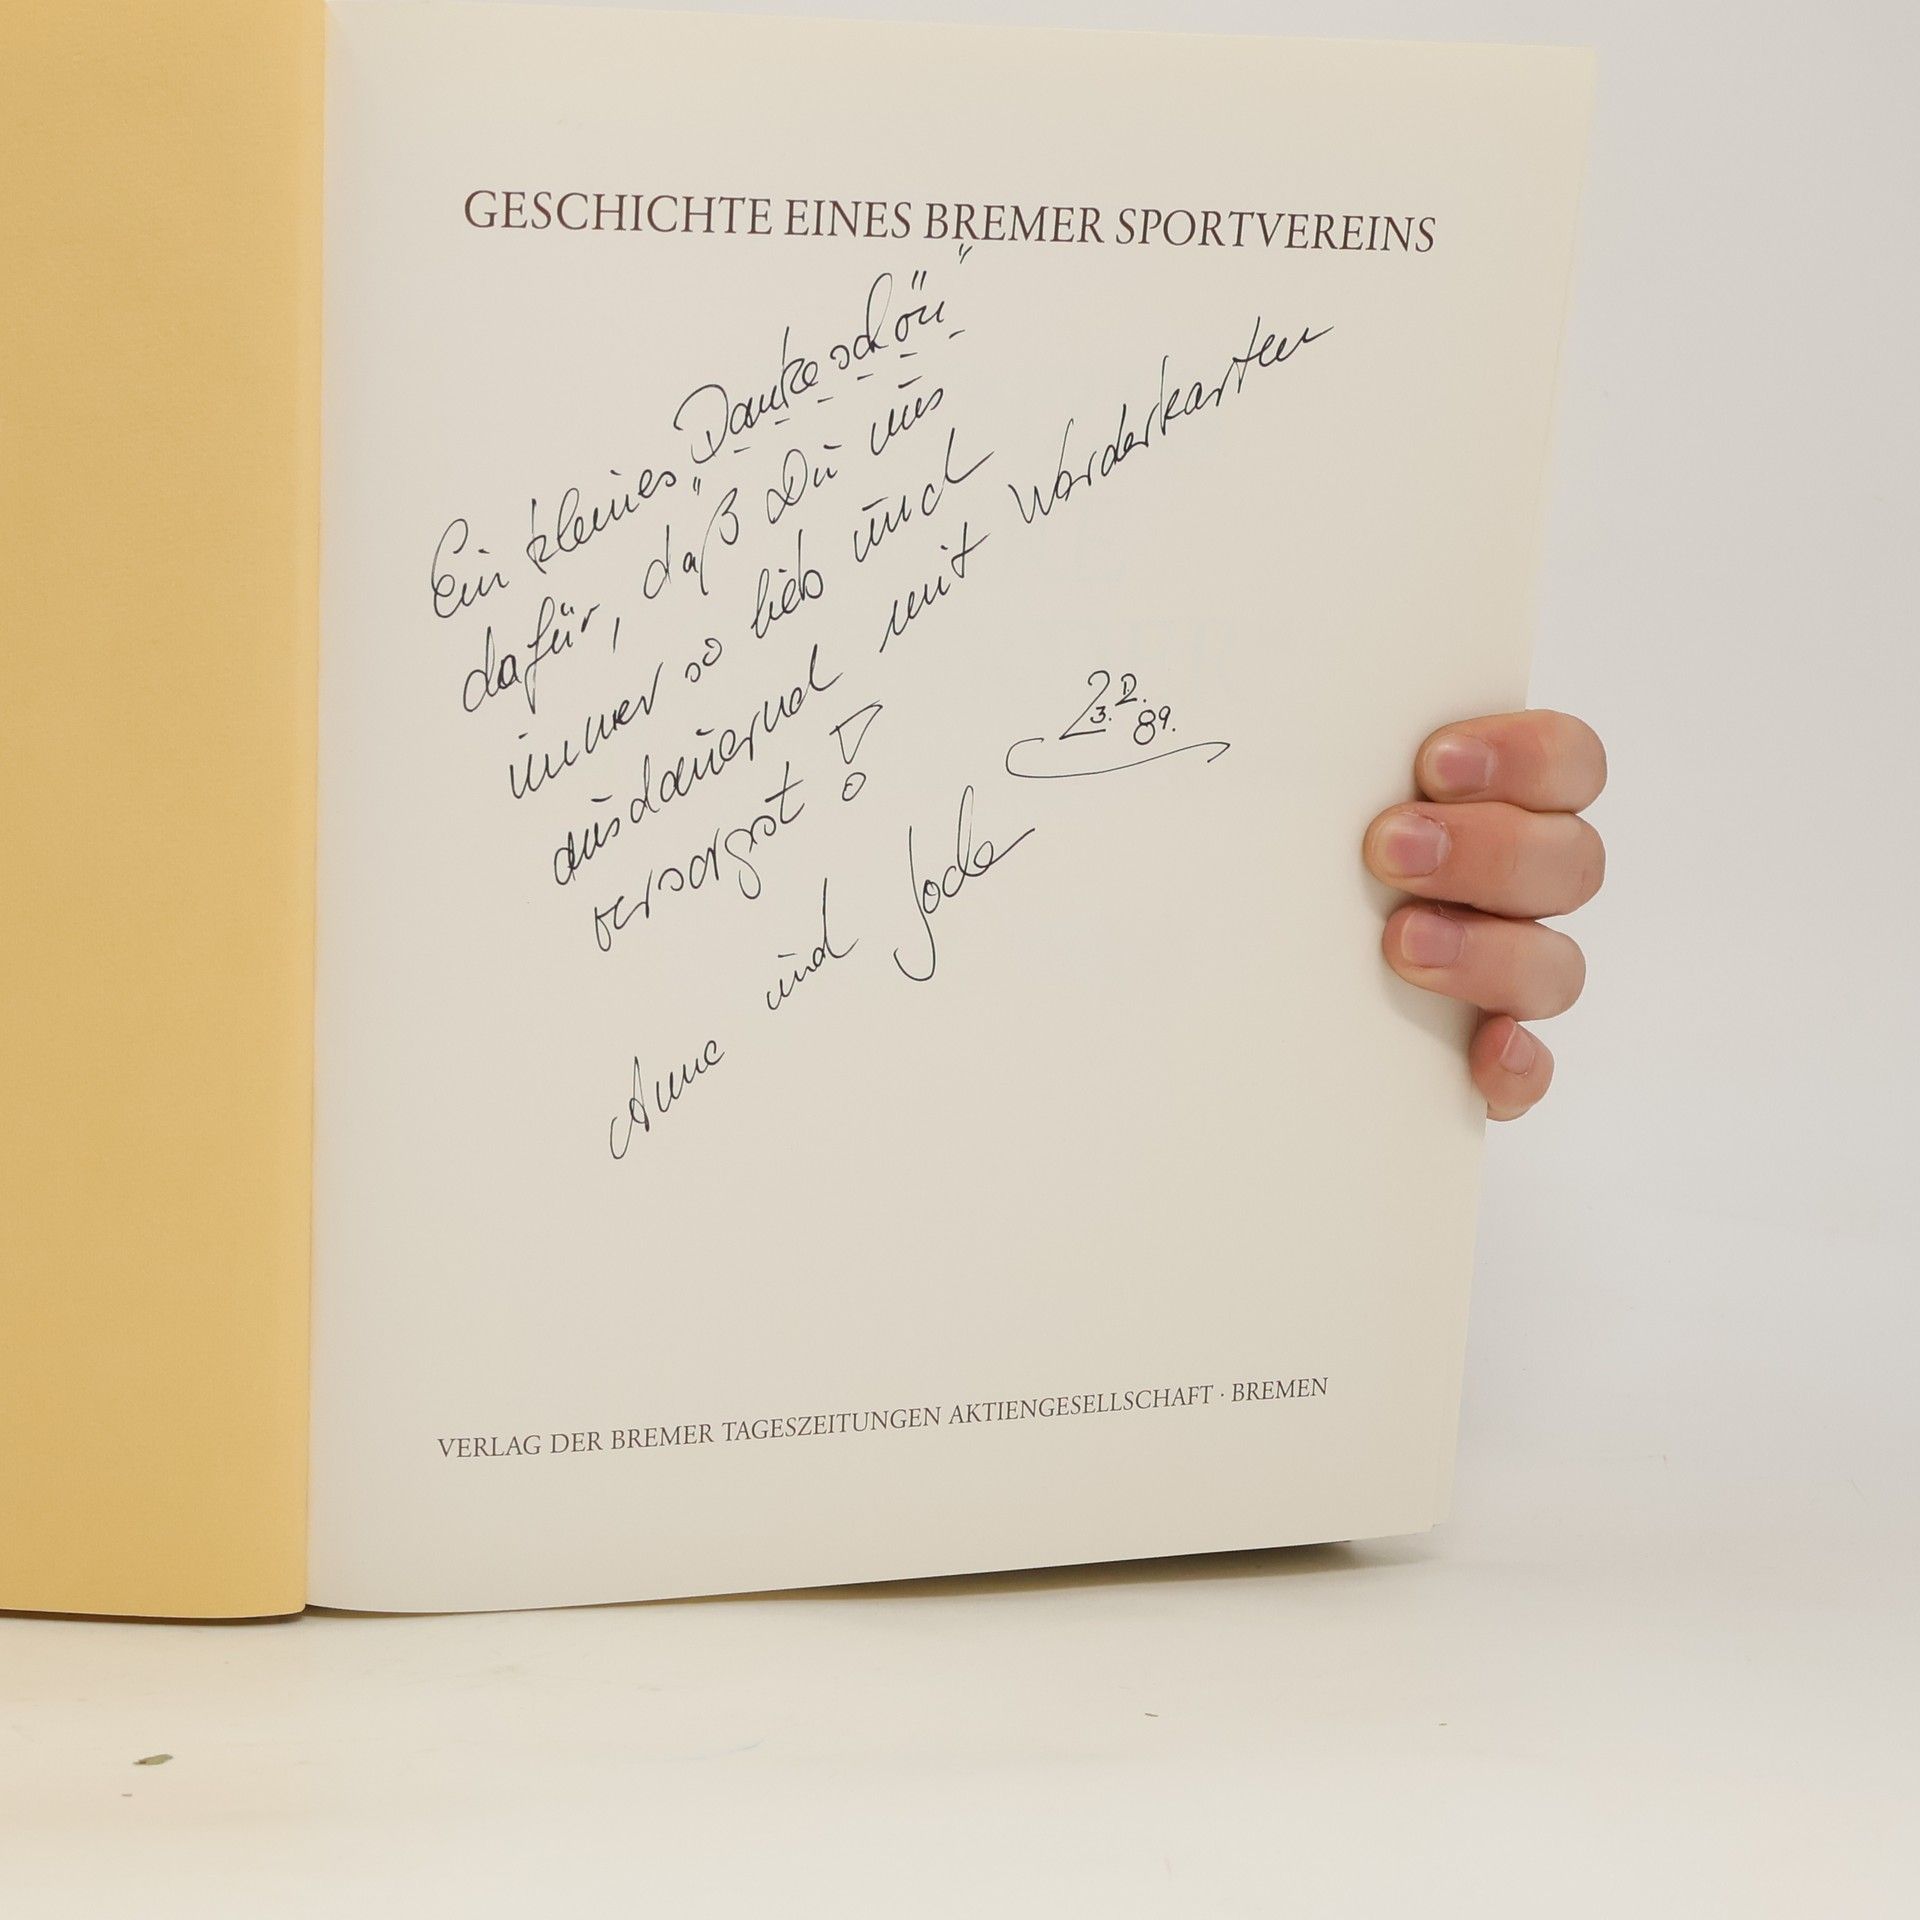 GESCHICHTE EINES BREMER SPORTVEREINS
Ein kleines „Dankeschön"
dafür, daß Du uns
immer so lieb und
ausdauernd mit Werderkarten
versorgst!
2. 2.
3. 89.
Anne und Jocke
VERLAG DER BREMER TAGESZEITUNGEN AKTIENGESELLSCHAFT · BREMEN